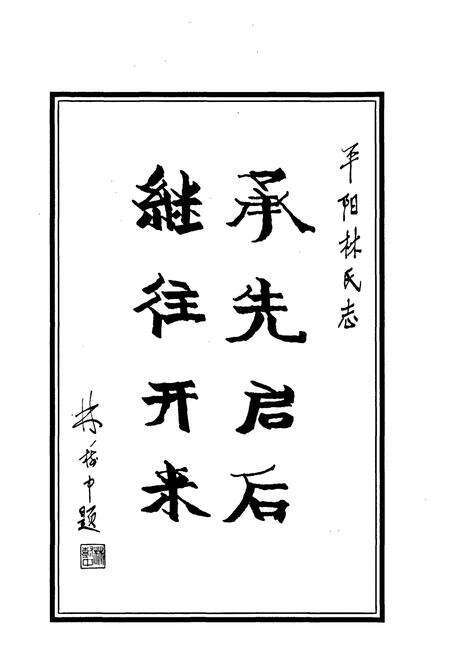 平阳林氏志
承先启后
继往开来
林
中题